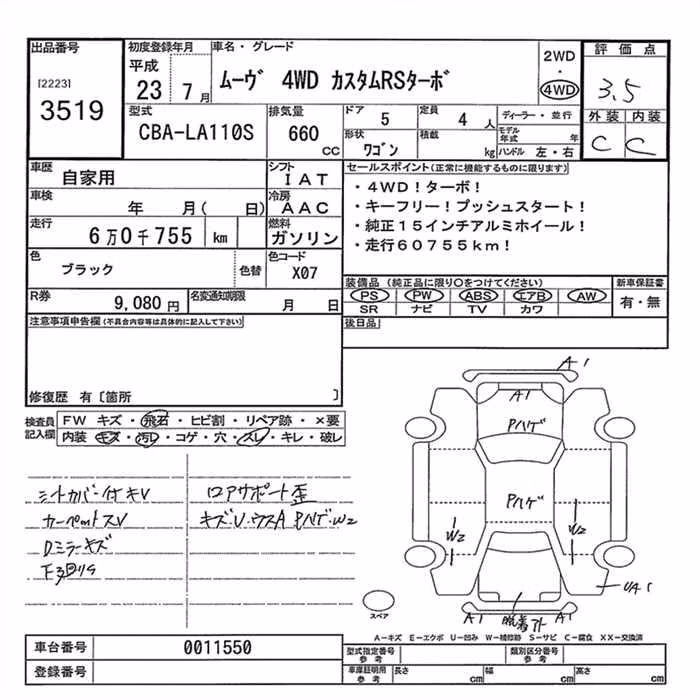 出品番号
[2223]
3519
初度登録年月
平成
23 7月
車名・グレード
ムーヴ 4WD カスタムRSターボ
2WD
・
4WD
評価点
3.5
外装 内装
C C
型式
CBA-LA110S
排気量
660
cc
ドア
5
定員
4 人
形状
ワゴン
積載
kg
ディーラー・並行
モデル年式 年
ハンドル 左・右
車歴
自家用
シフト
IAT
車検
年 月( 日)
冷房
AAC
走行
6万0千755 km
燃料
ガソリン
色
ブラック
色替
色コード
X07
R券
9,080 円
名変通知期限
月 日
セールスポイント(正常に機能するものに限ります)
・4WD!ターボ!
・キーフリー!プッシュスタート!
・純正15インチアルミホイール!
・走行60755km!
装備品 (純正品に限り○をつけてください)
PS PW ABS エアB AW
SR ナビ TV カワ
新車保証書
有・無
後日品
注意事項申告欄(不具合内容等は具体的に記入して下さい)
修復歴 有〔箇所 〕
検査員記入欄
FW キズ・飛石・ヒビ割・リペア跡・×要
内装 キズ・汚レ・コゲ・穴・スレ・キレ・破レ
シートカバー付キV
カーペットスV
Dミラーキズ
ロアサポート歪
キズU・ウスA Pハゲ・W2
A1
A1
Pハゲ
Pハゲ
W2
W2
UA1
A1
A1
スペア
A-キズ E-エクボ U-凹み W-補修跡 S-サビ C-腐食 XX-交換済
車台番号
0011550
登録番号
型式指定番号
参考
類別区分番号
参考
車庫証明用
参考
長さ cm
幅 cm
高さ cm